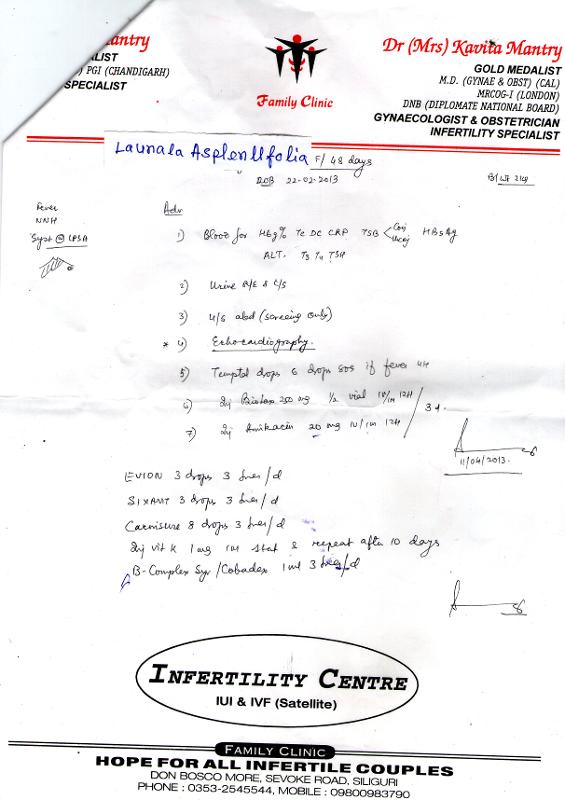 Mantry
ALIST
) PGI (CHANDIGARH)
SPECIALIST
Family Clinic
Dr (Mrs) Kavita Mantry
GOLD MEDALIST
M.D. (GYNAE & OBST) (CAL)
MRCOG-I (LONDON)
DNB (DIPLOMATE NATIONAL BOARD)
GYNAECOLOGIST & OBSTETRICIAN
INFERTILITY SPECIALIST
Launaea Asplenifolia F/ 48 days
DOB 22-02-2013
Fever
NNH
Adv
1) Blood for Hbg% TC DC CRP TSB HBsAg
ALT. T3 T4 TSH
2) Urine R/E & C/S
3) U/S abd (screening only)
* 4) Echocardiography.
5) drops 6 drops SOS if fever
6) Inj 250 mg 1/2 vial IV/IM 12H
7) Inj Amikacin 20 mg IV/IM 12H
11/04/2013.
EVION 3 drops 3 times/d
3 drops 3 times/d
Carnisure 8 drops 3 times/d
Inj vit K 1 mg IM stat & repeat after 10 days
B-Complex Syr /Cobadex 1 ml 3 times/d
INFERTILITY CENTRE
IUI & IVF (Satellite)
FAMILY CLINIC
HOPE FOR ALL INFERTILE COUPLES
DON BOSCO MORE, SEVOKE ROAD, SILIGURI
PHONE : 0353-2545544, MOBILE : 09800983790